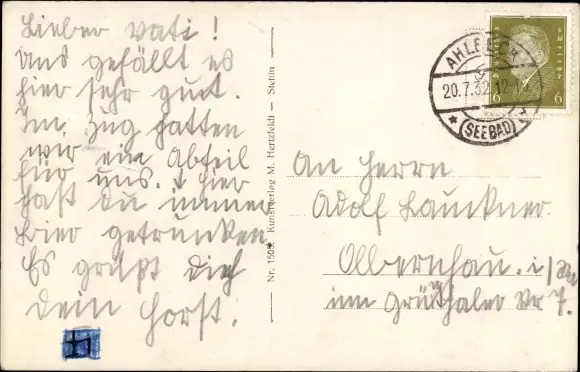 Lieber Vati!
Uns gefällt es
hier sehr gut.
Im Zug hatten
wir ein Abteil
für uns. Hier
hast du immer
Bier getrunken
Es grüßt dich
dein Horst.
Nr. 1503. Kunstverlag M. Hertzfeldt – Stettin
AHLBECK
20.7.32.12-
★ (SEEBAD)
6 6
An Herrn
Adolf Lauckner.
Olbernhau. i/Sa
Grünthaler Nr 7.